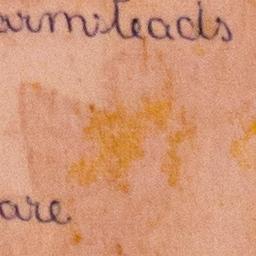 armsteads
are